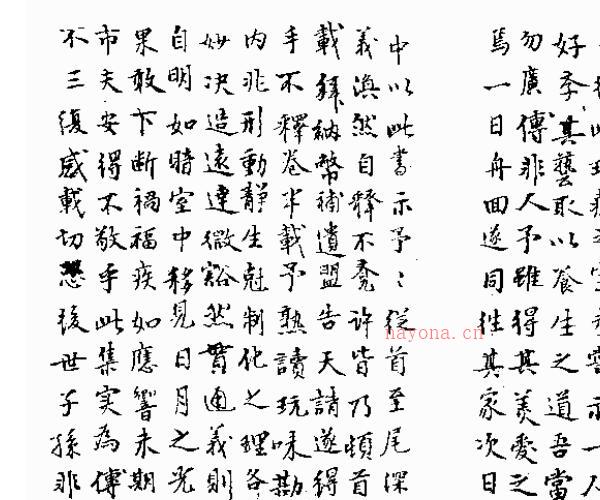 好季其藝取以養生之道吾當
勿廣傳非人予雖得其美愛之
焉一日舟回遂同往其家次日
中以此書示予〻從首至尾深
義渙然自釋不覺許皆乃頓首
載拜納幣補遺盟告天請遂得
手不釋卷半載予熟讀玩味勘
内非形動靜生尅制化之理各
妙决造遠達微豁然貫通義則
自明如暗室中移見日月之光
果敢下断禍福疾如應響未期
市夫安得不敬乎此集实為傳
不三復感載切後世子孫非
nayona.cn